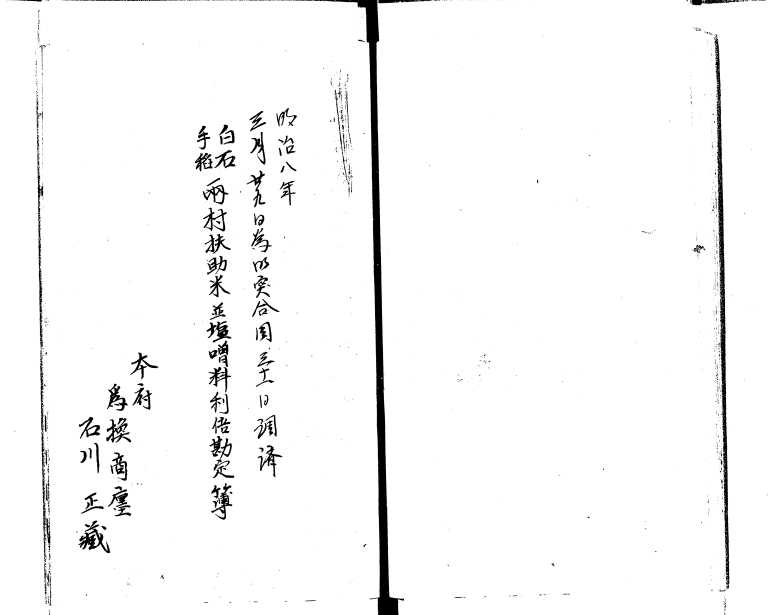 明治八年
三月廿九日為以突合同三十一日調済
白石
手稲
両村扶助米並塩噌料利倍勘定簿
本府
為換商廛
石川正蔵